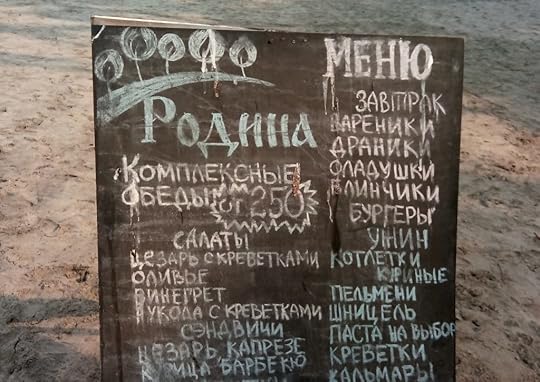 Родина
Комплексные
обеды от 250
Салаты
Цезарь с креветками
Оливье
Винегрет
Рукола с креветками
Сэндвичи
Цезарь, Капрезе
Курица барбекю
Меню
Завтрак
Вареники
Драники
Оладушки
Блинчики
Бургеры
Ужин
Котлетки
куриные
Пельмени
Шницель
Паста на выбор
Креветки
Кальмары